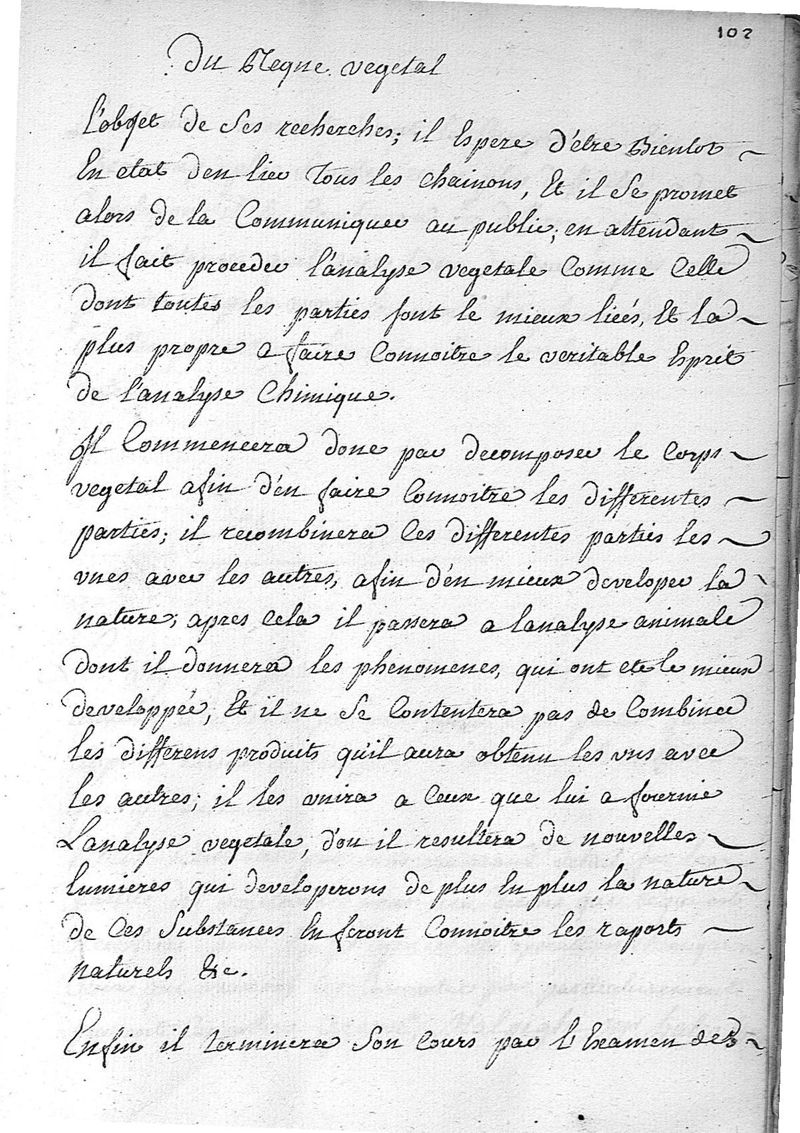 102
Du Regne vegetal
L'objet de ses recherches; il Espere d'être Bientot
En etat d'en lier Tous les chainons, Et il se promet
alors de la Communiquer au public; en attendant
il fait proceder l'analyse vegetale Comme Celle
dont toutes les parties sont le mieux liées, Et la
plus propre a faire Connoitre le veritable Esprit
de l'analyse Chimique.
Il Commencera donc par decomposer le Corps
vegetal afin d'en faire Connoitre les differentes
parties; il recombinera Ces differentes parties les
vnes avec les autres, afin d'en mieux developer la
nature; apres Cela il passera a lanalyse animale
dont il donnera les phenomenes, qui ont eté le mieux
developpée, Et il ne se Contentera pas de Combiner
les differens produits qu'il aura obtenu les vns avec
les autres; il les vnira a Ceux que lui a fournie
Lanalyse vegetale, d'ou il resultera de nouvelles
lumieres qui developerons de plus En plus la nature
de Ces substances En feront Connoitre les raports
naturels &c.
Enfin il terminera son Cours par l'Examen des